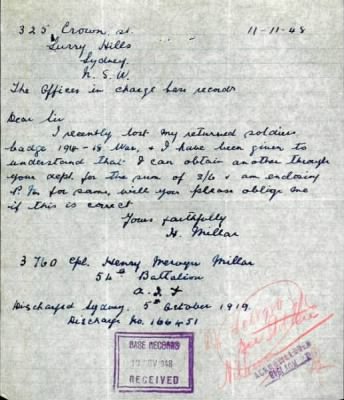 325 Crown St.
11-11-48
Surry Hills
Sydney.
N.S.W.
The Officer in charge base records
Dear Sir
I recently lost my returned soldiers
badge 1914-18 War, & I have been given to
understand that I can obtain another through
your dept. for the sum of 3/6 & am enclosing
P.N. for same, will you please oblige me
if this is correct
Yours faithfully
H. Millar
3760 Cpl. Henry Mervyn Millar
54th Battalion
A.I.F
Discharged Sydney. 5th October 1919.
Discharge No. 166451
BASE RECORDS
NOV 1948
RECEIVED